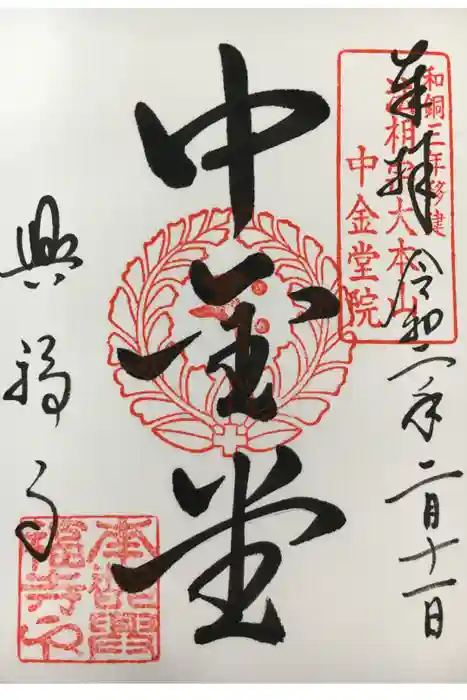 和銅三年移建
法相宗大本山
中金堂院
奉拝
令和二年二月十一日
中金堂
興福寺